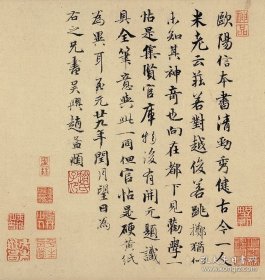 歐陽信本書清勁秀健古今一人
米老云莊若對越俊若跳擲猶似
未知其神奇也向在都下見勸學一
帖是集賢官庫物後有開元題識
具全筆意與此一同但官帖是硬黄紙
為異耳至元廿九年閏月望日為
右之兄書吳興趙孟頫